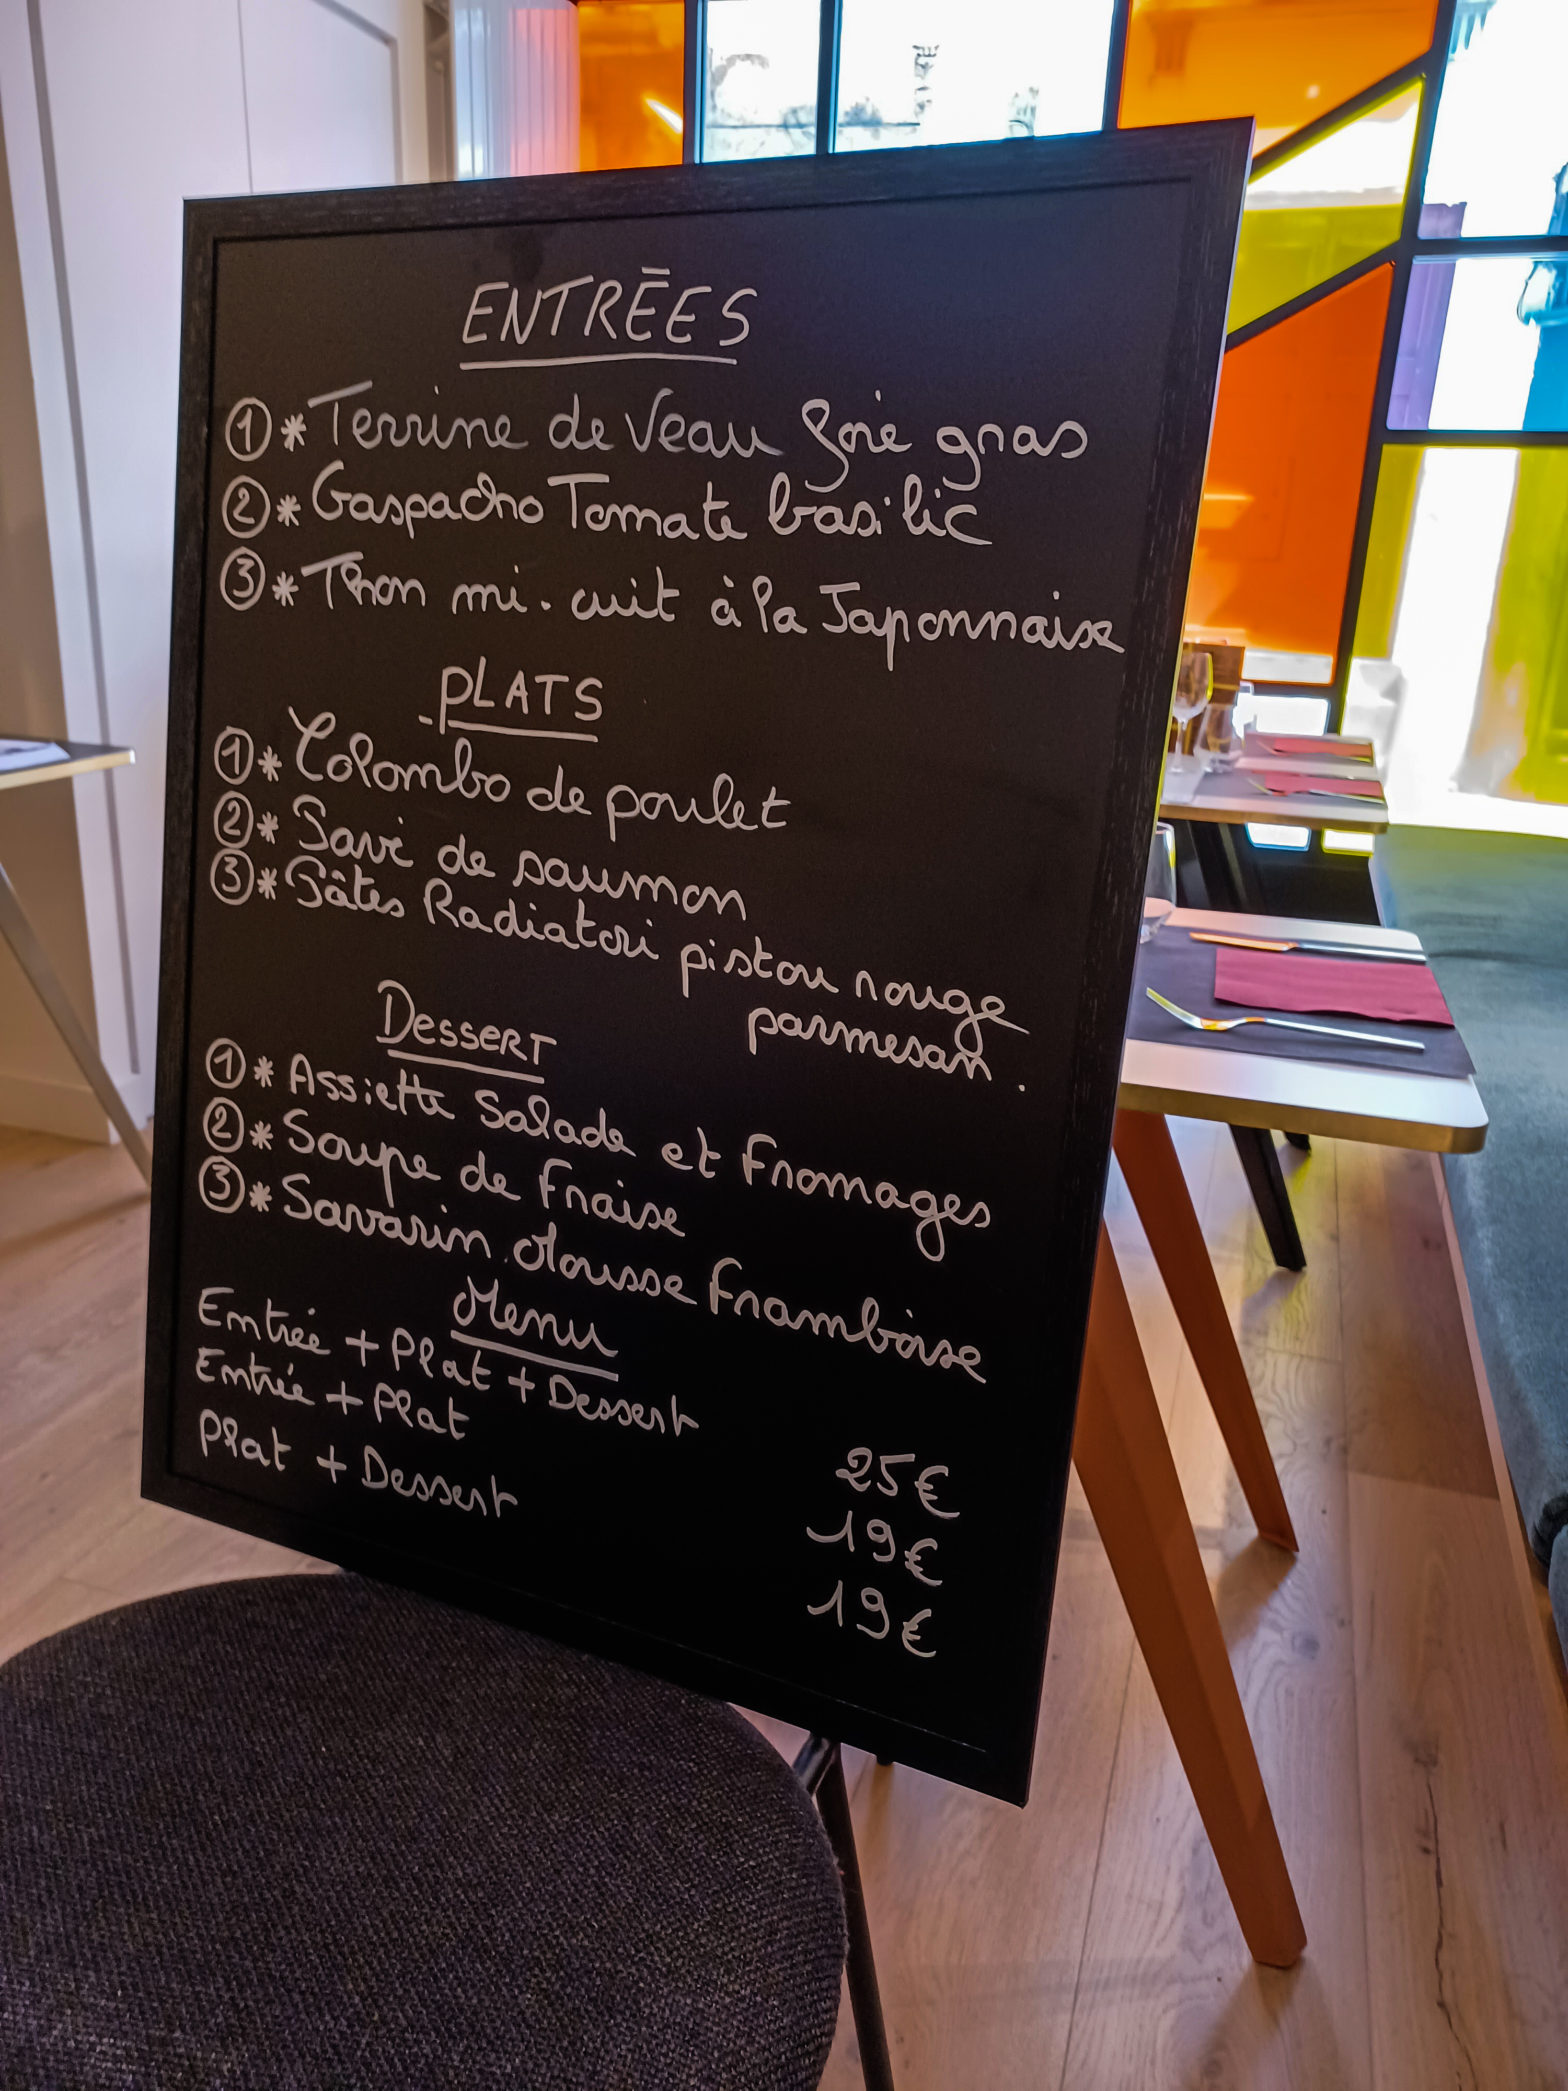 ENTRÉES
① * Terrine de Veau foie gras
② * Gaspacho Tomate basilic
③ * Thon mi-cuit à la Japonnaise
PLATS
① * Colombo de poulet
② * Pavé de saumon
③ * Pâtes Radiatori pistou rouge
parmesan.
DESSERT
① * Assiette Salade et Fromages
② * Soupe de Fraise
③ * Savarin Mousse Framboise
Menu
Entrée + Plat + Dessert 25€
Entrée + Plat 19€
Plat + Dessert 19€